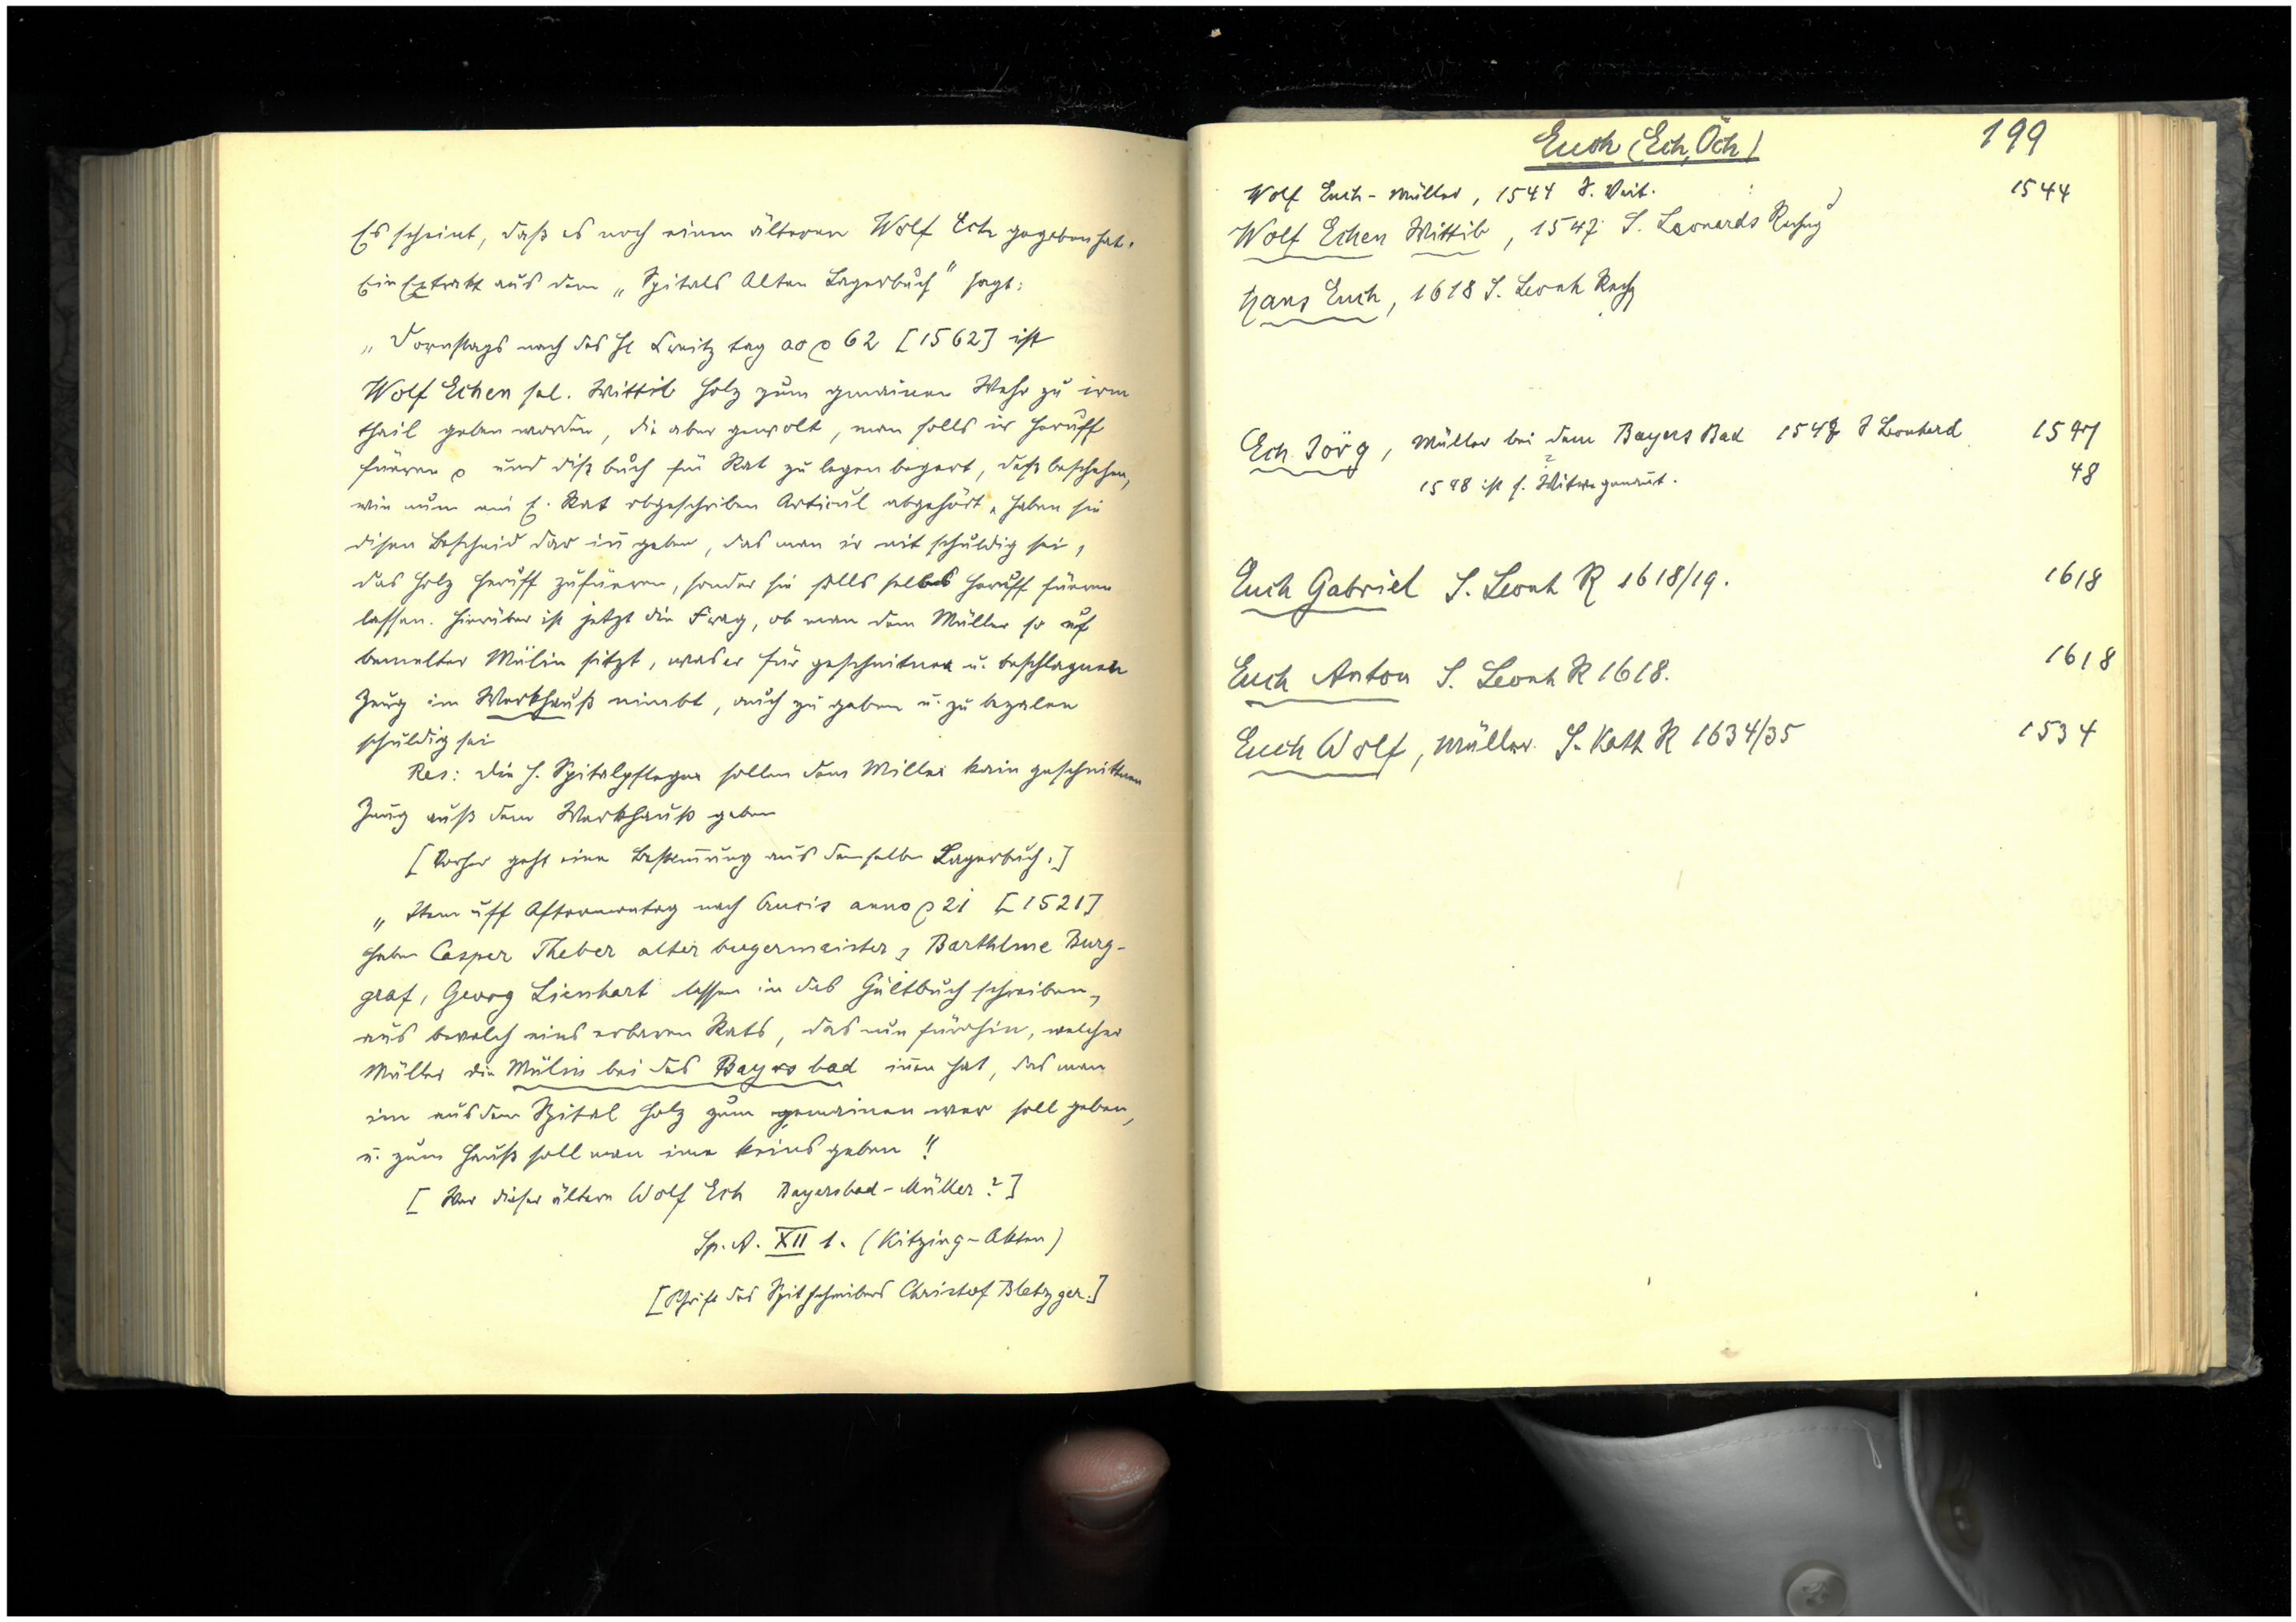 Es scheint, daß es noch einen älteren Wolf Ech gegeben hat.
Ein Extrakt aus dem „Spitals Alten Lagerbuch" sagt:
„Dornstags nach des Hl Creitz tag ao 62 [1562] ist
Wolf Echen sel. Wittib holz zum gmainen Wehr zu irm
thail geben worden, die aber gewolt, man solls ir heruff
füeren und diß buch für Rat zu legen begert, deß beschehen,
wie nun ein E. Rat obgeschriben Articul abgehört, haben sie
disen Bescheid darin geben, das man ir nit schuldig sei,
das holz heruff zufüeren, sonder sie solls selbs heruff füeren
lassen. Hierüber ist jetzt die Frag, ob man dem Müller so uf
bemelter Mülin sitzt, was er für geschnitnen u. beschlagnen
Zeug im Werkhauß nimbt, auch zu geben u. zu bezalen
schuldig sei
Res: die H. Spitalpfleger sollen dem Miller kain geschnittnen
Zeug auß dem Werkhauß geben
[Vorher geht eine Bestim̄ung aus demselben Lagerbuch:]
„Item uff Aftermontag nach Crucis anno 21 [1521]
haben Casper Theber alter burgermaister, Barthlme Burg-
graf, Georg Lienhart lassen in das Gültbuch schreiben,
aus bevelch eins erbaren Rats, das nun fürohin, welcher
Müller die Mülin bei des Bayrs bad in̄en hat, das man
im aus dem Spital holz zum gemainen wer soll geben,
u. zum Hauß soll man ime keins geben"
[War dieser ältere Wolf Ech Bayersbad-Müller?]
Sp. A. XII 1. (Kitzing-Akten)
[Schrift des Spitschreibers Christof Bletzger.]
Euch (Ech, Öch) 199
Wolf Euch - Müller, 1544 S. Veit. 1544
Wolf Echen Wittib, 1547 S. Leonards Rechng
Hans Euch, 1618 S. Leonh Rechg
Ech Jörg, Müller bei dem Bayers Bad 1547 S Leonhard 1547
1548 ist s. Witwe genannt. 48
Euch Gabriel S. Leonh R 1618/19. 1618
Euch Anton S. Leonh R 1618. 1618
Euch Wolf, Müller S. Kath R 1634/35 1534